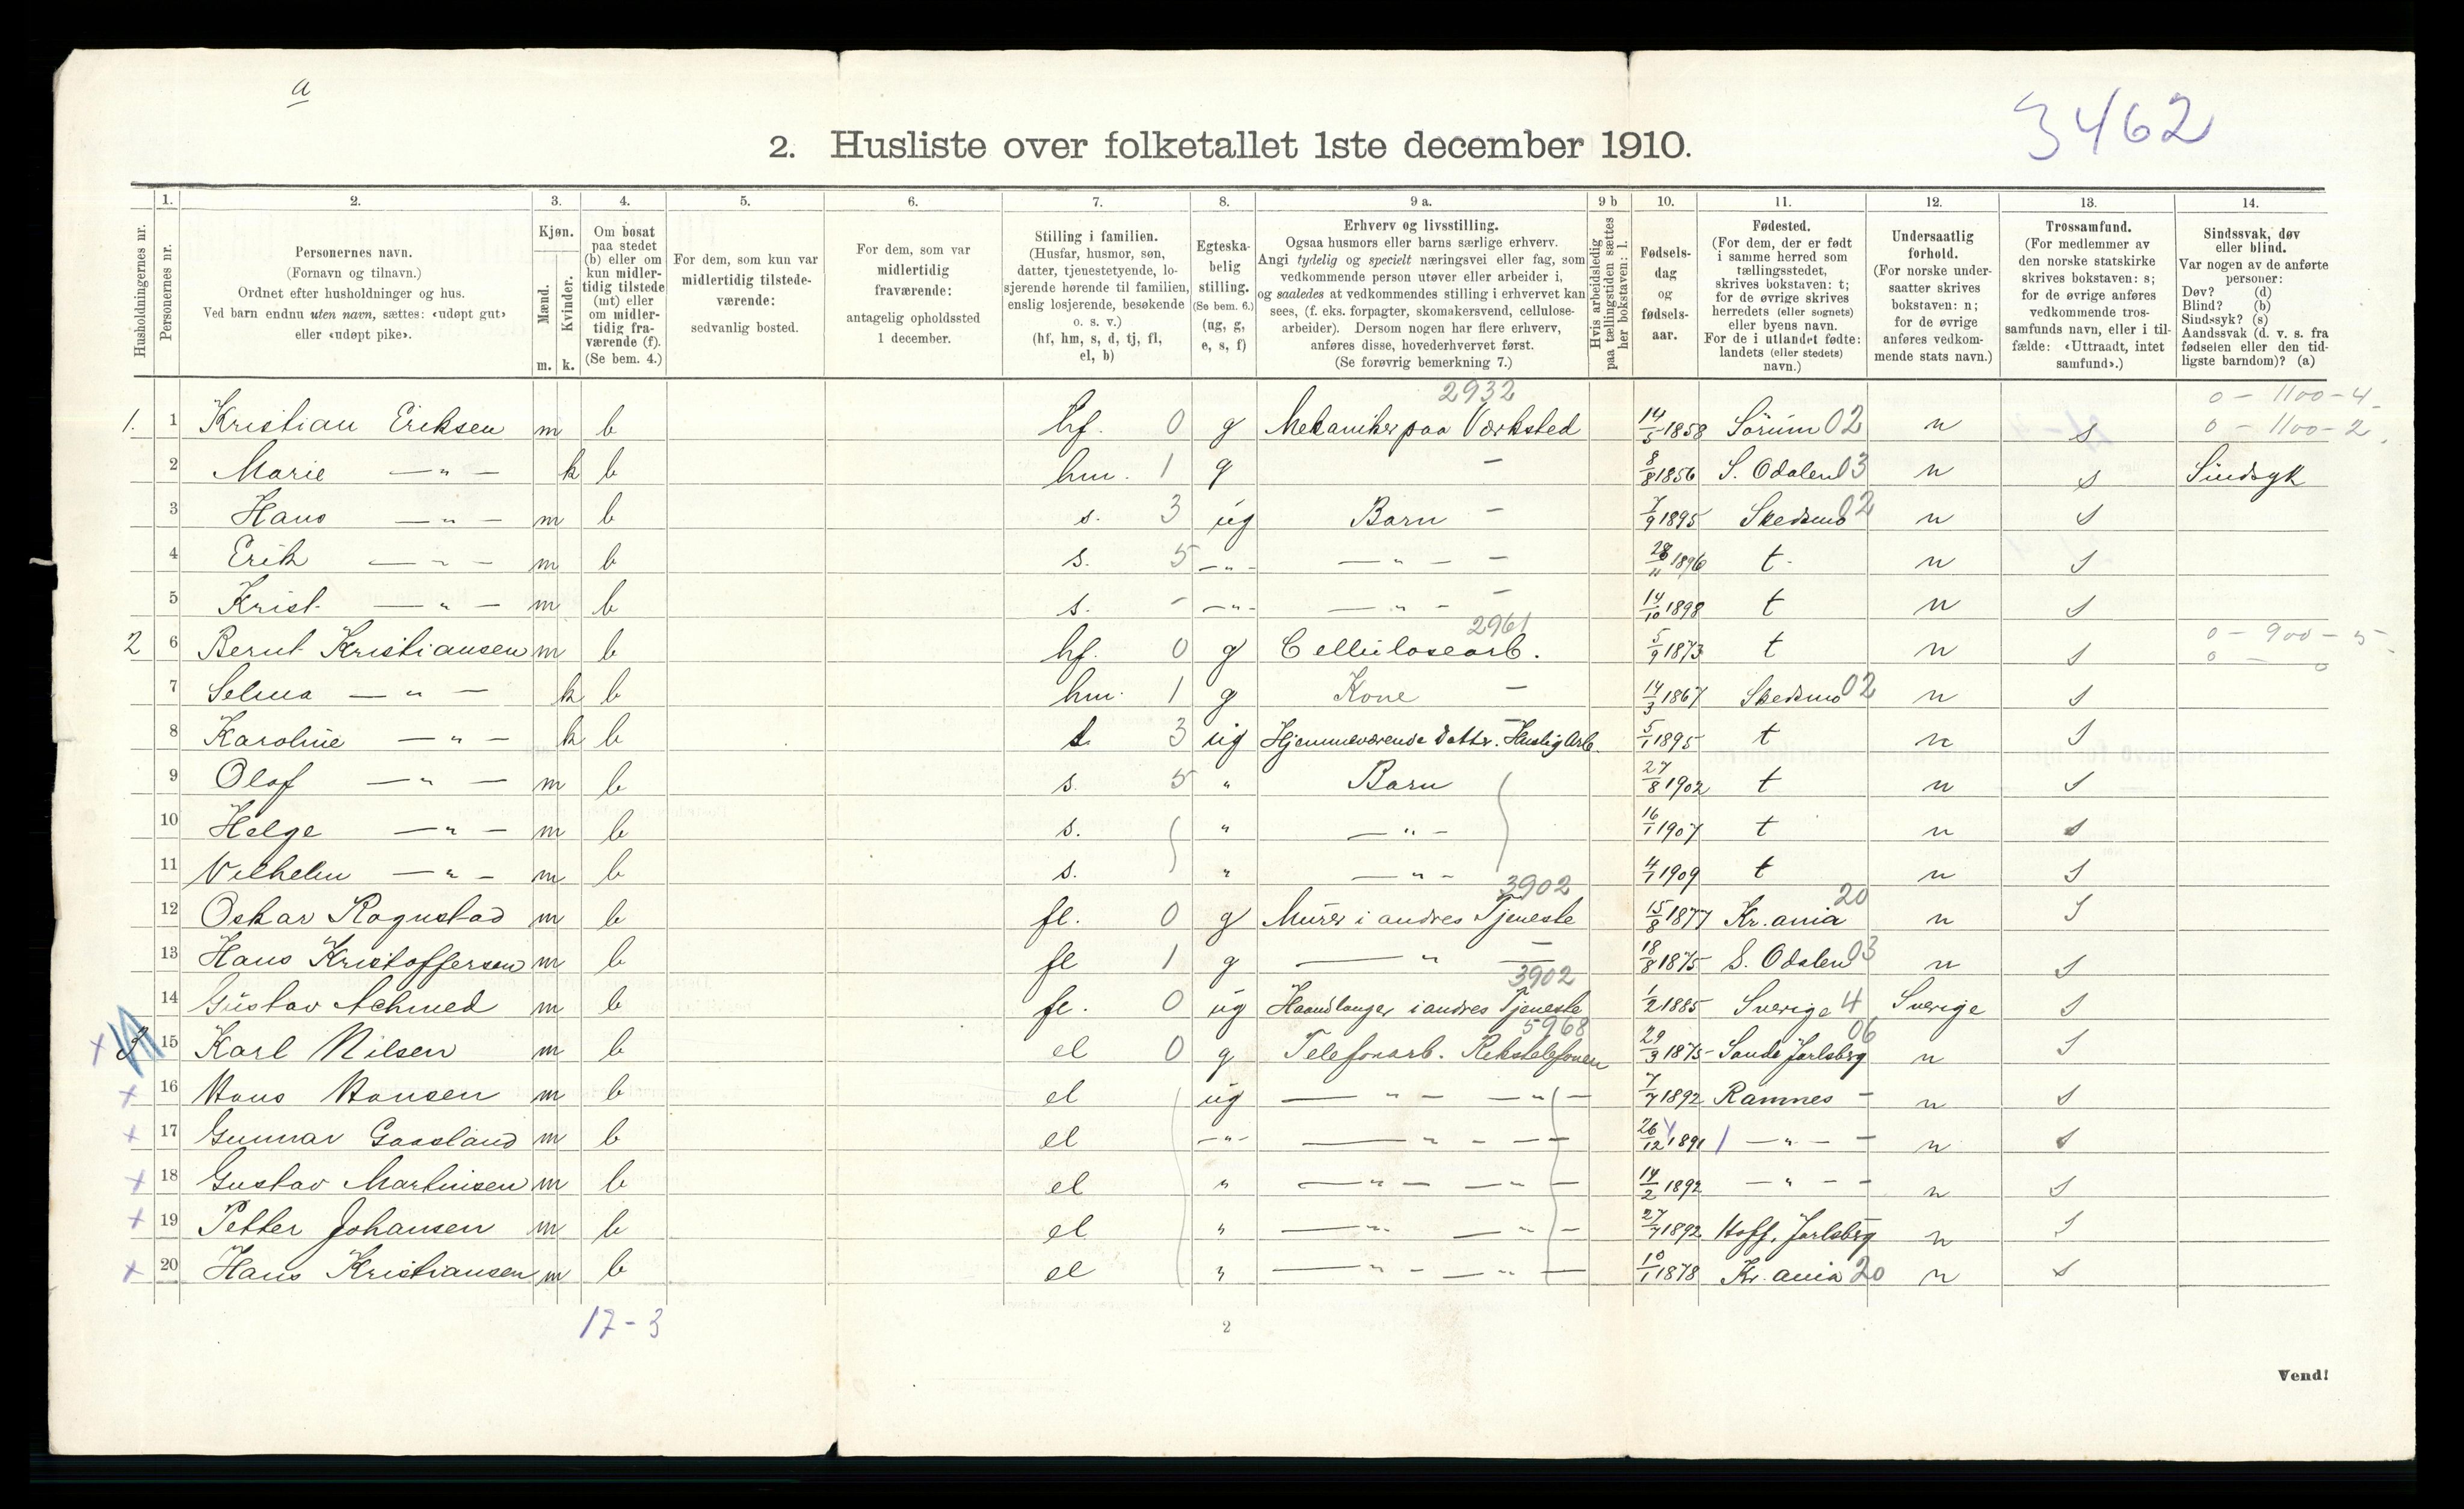 a
3462
2. Husliste over folketallet 1ste december 1910.
Husholdningernes nr.
1. Personernes nr.
2. Personernes navn.
(Fornavn og tilnavn.)
Ordnet efter husholdninger og hus.
Ved barn endnu uten navn, sættes: «udøpt gut»
eller «udøpt pike».
3. Kjøn.
Mænd. Kvinder.
m. k.
4. Om bosat
paa stedet
(b) eller om
kun midler-
tidig tilstede
(mt) eller
om midler-
tidig fra-
værende (f).
(Se bem. 4.)
5. For dem, som kun var
midlertidig tilstede-
værende:
sedvanlig bosted.
6. For dem, som var
midlertidig
fraværende:
antagelig opholdssted
1 december.
7. Stilling i familien.
(Husfar, husmor, søn,
datter, tjenestetyende, lo-
sjerende hørende til familien,
enslig losjerende, besøkende
o. s. v.)
(hf, hm, s, d, tj, fl,
el, b)
8. Egteska-
belig
stilling.
(Se bem. 6.)
(ug, g,
e, s, f)
9 a. Erhverv og livsstilling.
Ogsaa husmors eller barns særlige erhverv.
Angi tydelig og specielt næringsvei eller fag, som
vedkommende person utøver eller arbeider i,
og saaledes at vedkommendes stilling i erhvervet kan
sees, (f. eks. forpagter, skomakersvend, cellulose-
arbeider). Dersom nogen har flere erhverv,
anføres disse, hovederhvervet først.
(Se forøvrig bemerkning 7.)
9 b Hvis arbeidsledig
paa tællingstiden sættes
her bokstaven: l.
10. Fødsels-
dag
og
fødsels-
aar.
11. Fødested.
(For dem, der er født
i samme herred som
tællingsstedet,
skrives bokstaven: t;
for de øvrige skrives
herredets (eller sognets)
eller byens navn.
For de i utlandet fødte:
landets (eller stedets)
navn.)
12. Undersaatlig
forhold.
(For norske under-
saatter skrives
bokstaven: n;
for de øvrige
anføres vedkom-
mende stats navn.)
13. Trossamfund.
(For medlemmer av
den norske statskirke
skrives bokstaven: s;
for de øvrige anføres
vedkommende tros-
samfunds navn, eller i til-
fælde: «Uttraadt, intet
samfund».)
14. Sindssvak, døv
eller blind.
Var nogen av de anførte
personer:
Døv? (d)
Blind? (b)
Sindssyk? (s)
Aandssvak (d. v. s. fra
fødselen eller den tid-
ligste barndom)? (a)
2932 0 - 1100 - 4
1. 1 Kristian Eriksen m b hf. 0 g Mekaniker paa Værksted 14/5 1858 Sörum 02 n s 0 - 1100 - 2
2 Marie — „ — k b hm. 1 g - 8/8 1856 S. Odalen 03 n s Sindsyk
3 Hans — „ — m b s. 3 ug Barn - 7/9 1895 Skedsmo 02 n s
4 Erik — „ — m b s. 5 — „ — — „ — - 28/11 1896 t n s
5 Krist. — „ — m b s. - — „ — — „ — - 14/10 1898 t n s
2961
2 6 Bernt Kristiansen m b hf. 0 g Cellulosearb. 5/9 1873 t n s 0 - 900 - 5
7 Selma — „ — k b hm. 1 g Kone - 14/3 1867 Skedsmo 02 n s
8 Karoline — „ — k b d. 3 ug Hjemmeværende datter. Huslig Arb. 5/1 1895 t n s
9 Olaf — „ — m b s. 5 „ Barn 27/8 1902 t n s
10 Helge — „ — m b s. „ — „ — 16/1 1907 t n s
11 Vilhelm — „ — m b s. „ — „ — 4/1 1909 t n s
3902
12 Oskar Rognstad m b fl. 0 g Murer i andres Tjeneste 15/8 1877 Kr.ania 20 n s
13 Hans Kristoffersen m b fl 1 g — „ — 18/8 1875 S. Odalen 03 n s
3902
14 Gustav Achmed m b fl. 0 ug Haandlanger i andres Tjeneste 1/2 1885 Sverige 4 Sverige s
5968
x 3 15 Karl Nilsen m b el 0 g Telefonarb. Rikstelefonen 29/3 1875 Sande Jarlsberg 06 n s
x 16 Hans Hansen m b el ug — „ — — „ — 7/7 1892 Ramnes - n s
x 17 Gunnar Gaasland m b el — „ — — „ — — 26/12 1891 — „ — - n s
x 18 Gustav Martinsen m b el „ — „ — — „ — 14/2 1892 — „ — - n s
x 19 Petter Johansen m b el „ — „ — — „ — 27/7 1892 Hoff, Jarlsberg n s
x 20 Hans Kristiansen m b el „ — „ — — „ — 10/1 1878 Kr.ania 20 n s
17 - 3
2
Vend!